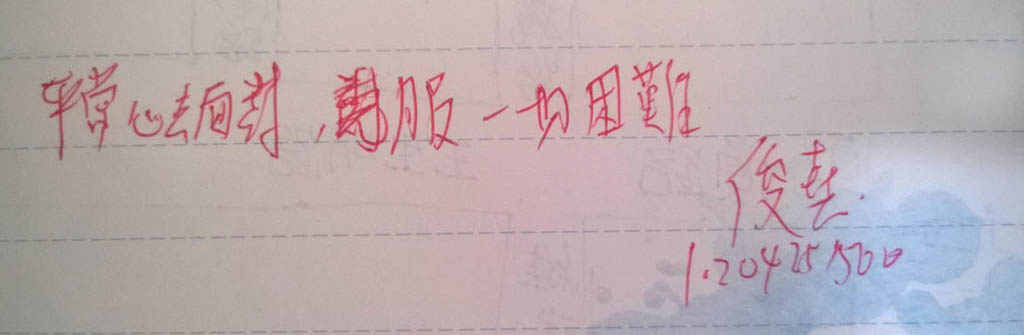 平常心去面對,服一切困難
俊
1.204251500